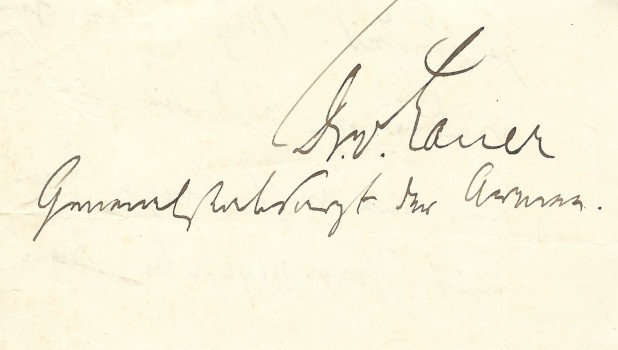 Dr. v. Lauer
Generalstabsarzt der Armee.